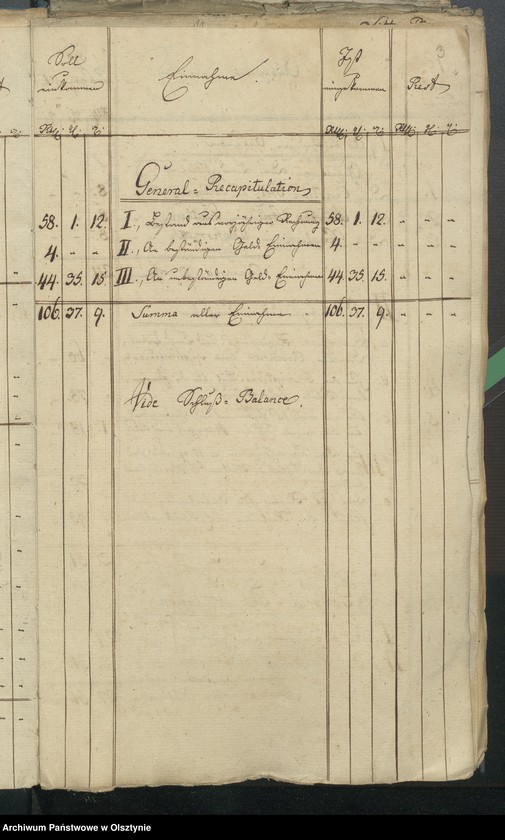 3
Soll einkommen | Einnahme. | Ist eingekommen | Rest
General = Recapitulation
58. 1. 12. I., Bestand aus voriger Rechnung 58. 1. 12. " " "
4. " " II., An beständigen Geld Einnahmen 4. " " " " "
44. 35. 15. III., An unbeständigen Geld = Einnahmen 44. 35. 15. " " "
106. 37. 9. Summa aller Einnahmen. 106. 37. 9. " " "
Vide Schluß = Balance.
Archiwum Państwowe w Olsztynie